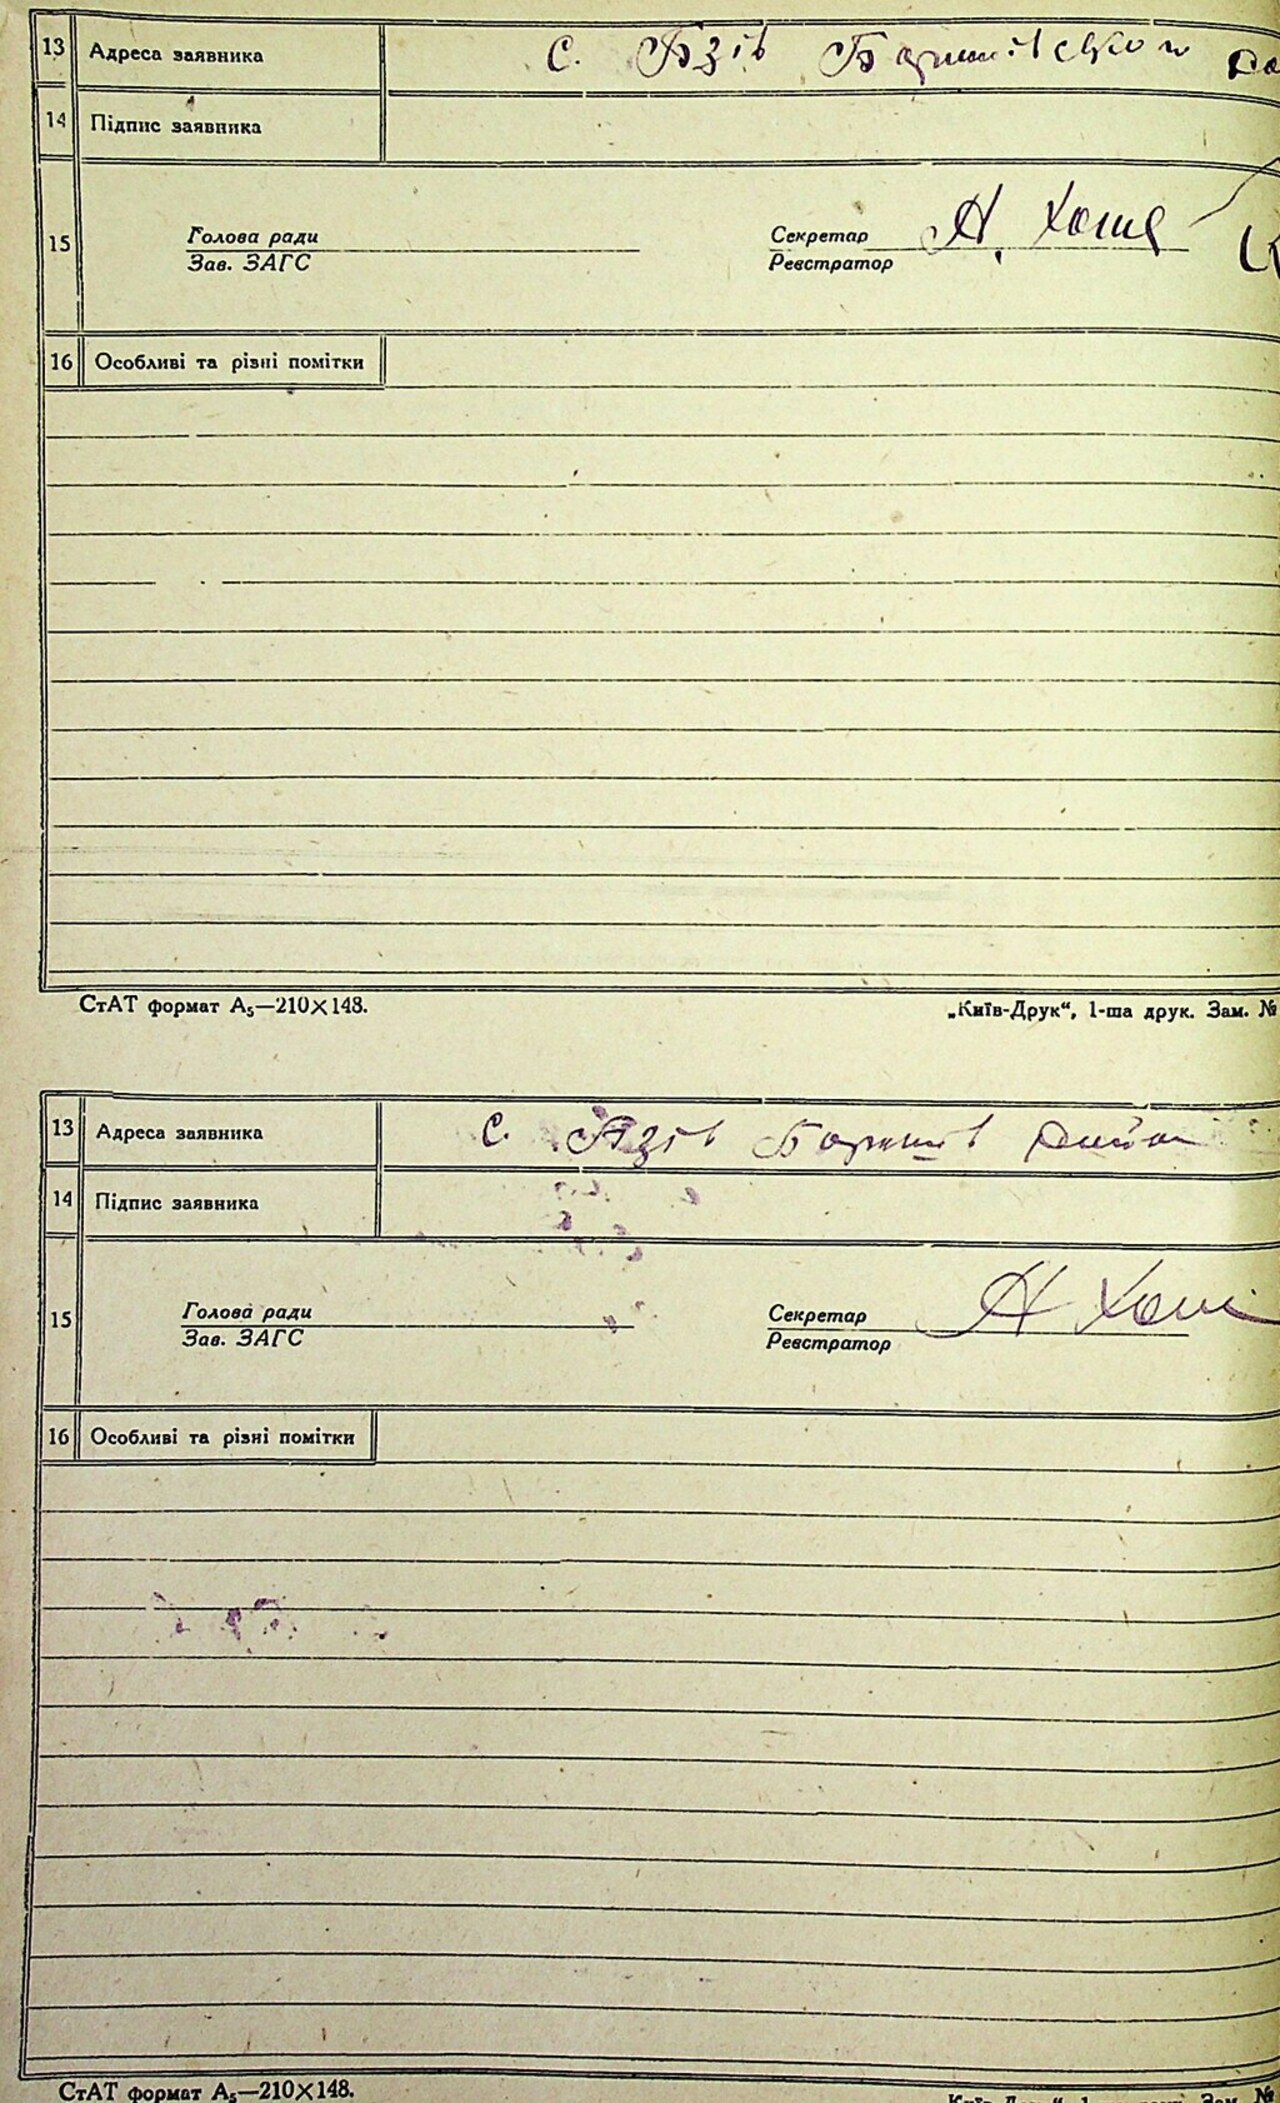 13 Адреса заявника с. Бзів Баришівського
14 Підпис заявника
15 Голова ради Секретар
Зав. ЗАГС Реєстратор
16 Особливі та різні помітки
СтАТ формат А₅—210×148. „Київ-Друк“, 1-ша друк. Зам. №
13 Адреса заявника с. Бзів Баришів район
14 Підпис заявника
15 Голова ради Секретар
Зав. ЗАГС Реєстратор
16 Особливі та різні помітки
СтАТ формат А₅—210×148. Зам. №